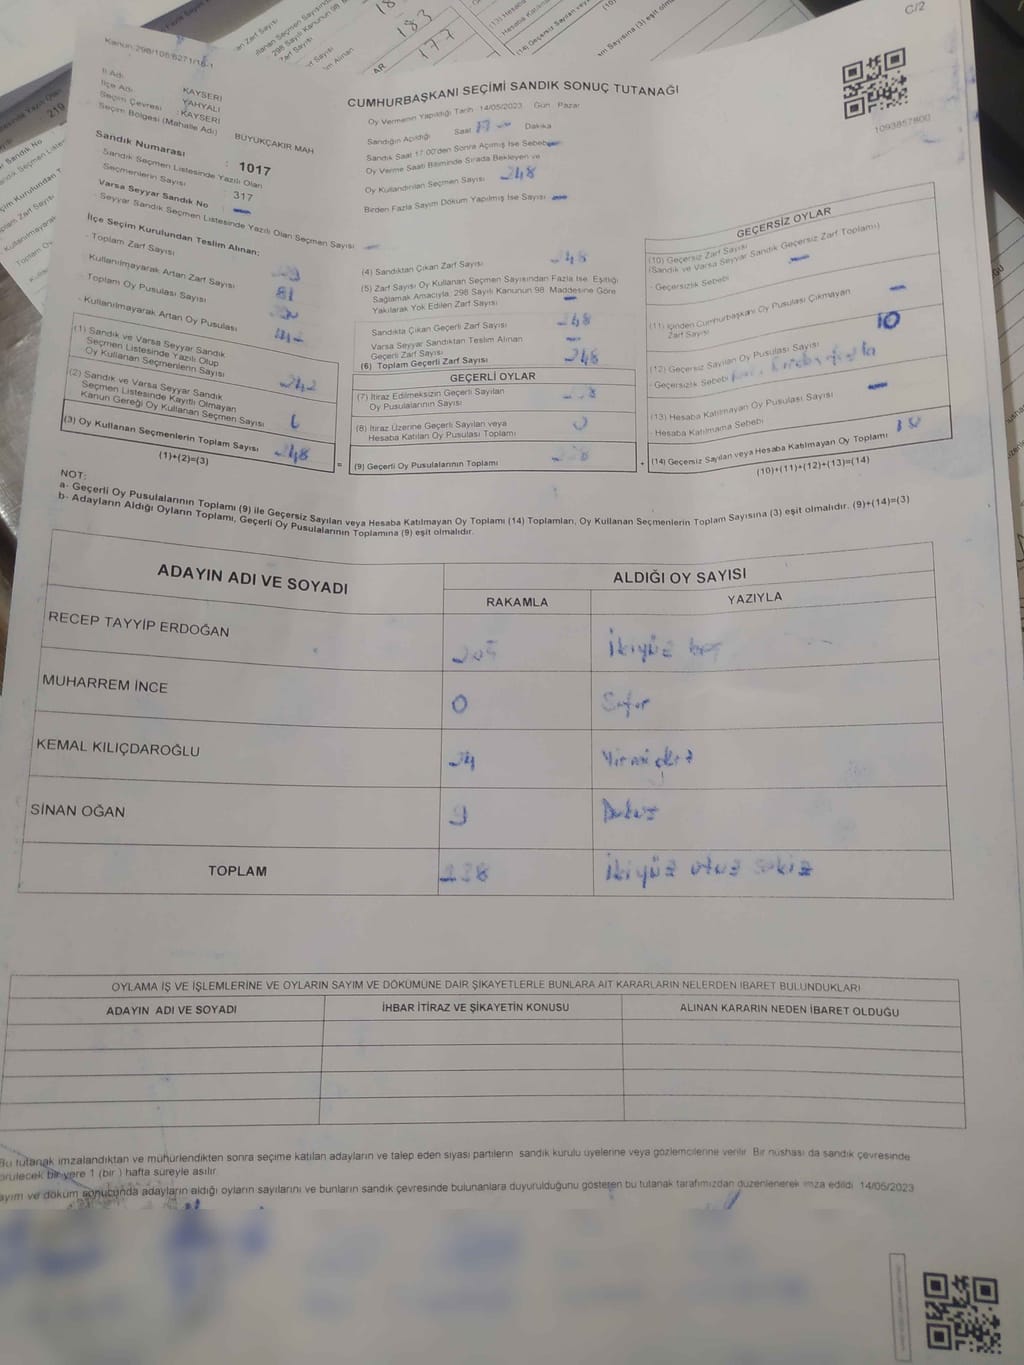 C/2
Kanun:298/105/6271/16-1
CUMHURBAŞKANI SEÇİMİ SANDIK SONUÇ TUTANAĞI
1093857800
İl Adı : KAYSERİ
İlçe Adı : YAHYALI
Seçim Çevresi : KAYSERİ
Seçim Bölgesi (Mahalle Adı) BÜYÜKÇAKIR MAH
Sandık Numarası : 1017
Sandık Seçmen Listesinde Yazılı Olan
Seçmenlerin Sayısı : 317
Varsa Seyyar Sandık No
- Seyyar Sandık Seçmen Listesinde Yazılı Olan Seçmen Sayısı
Oy Vermenin Yapıldığı Tarih 14/05/2023 Gün Pazar
Sandığın Açıldığı Saat 17 Dakika
Sandık Saat 17:00'den Sonra Açılmış İse Sebebi
Oy Verme Saati Bitiminde Sırada Bekleyen ve
Oy Kullandırılan Seçmen Sayısı 248
Birden Fazla Sayım Döküm Yapılmış İse Sayısı
İlçe Seçim Kurulundan Teslim Alınan:
- Toplam Zarf Sayısı
- Kullanılmayarak Artan Zarf Sayısı 81
- Toplam Oy Pusulası Sayısı
- Kullanılmayarak Artan Oy Pusulası
(1) Sandık ve Varsa Seyyar Sandık
Seçmen Listesinde Yazılı Olup
Oy Kullanan Seçmenlerin Sayısı 242
(2) Sandık ve Varsa Seyyar Sandık
Seçmen Listesinde Kayıtlı Olmayan
Kanun Gereği Oy Kullanan Seçmen Sayısı 6
(3) Oy Kullanan Seçmenlerin Toplam Sayısı 248
(1)+(2)=(3)
(4) Sandıktan Çıkan Zarf Sayısı 248
(5) Zarf Sayısı Oy Kullanan Seçmen Sayısından Fazla İse, Eşitliği
Sağlamak Amacıyla, 298 Sayılı Kanunun 98. Maddesine Göre
Yakılarak Yok Edilen Zarf Sayısı
Sandıkta Çıkan Geçerli Zarf Sayısı 248
Varsa Seyyar Sandıktan Teslim Alınan
Geçerli Zarf Sayısı
(6) Toplam Geçerli Zarf Sayısı 248
GEÇERLİ OYLAR
(7) İtiraz Edilmeksizin Geçerli Sayılan
Oy Pusulalarının Sayısı 238
(8) İtiraz Üzerine Geçerli Sayılan veya
Hesaba Katılan Oy Pusulası Toplamı 0
= (9) Geçerli Oy Pusulalarının Toplamı 238
GEÇERSİZ OYLAR
(10) Geçersiz Zarf Sayısı
(Sandık ve Varsa Seyyar Sandık Geçersiz Zarf Toplamı)
- Geçersizlik Sebebi
(11) İçinden Cumhurbaşkanı Oy Pusulası Çıkmayan
Zarf Sayısı
(12) Geçersiz Sayılan Oy Pusulası Sayısı 10
- Geçersizlik Sebebi
(13) Hesaba Katılmayan Oy Pusulası Sayısı
- Hesaba Katılmama Sebebi
+ (14) Geçersiz Sayılan veya Hesaba Katılmayan Oy Toplamı 10
(10)+(11)+(12)+(13)=(14)
NOT:
a- Geçerli Oy Pusulalarının Toplamı (9) ile Geçersiz Sayılan veya Hesaba Katılmayan Oy Toplamı (14) Toplamları, Oy Kullanan Seçmenlerin Toplam Sayısına (3) eşit olmalıdır. (9)+(14)=(3)
b- Adayların Aldığı Oyların Toplamı, Geçerli Oy Pusulalarının Toplamına (9) eşit olmalıdır.
ADAYIN ADI VE SOYADI ALDIĞI OY SAYISI
RAKAMLA YAZIYLA
RECEP TAYYİP ERDOĞAN 205 İkiyüz beş
MUHARREM İNCE 0 Sıfır
KEMAL KILIÇDAROĞLU 24 Yirmi dört
SİNAN OĞAN 9 Dokuz
TOPLAM 238 İkiyüz otuz sekiz
OYLAMA İŞ VE İŞLEMLERİNE VE OYLARIN SAYIM VE DÖKÜMÜNE DAİR ŞİKAYETLERLE BUNLARA AİT KARARLARIN NELERDEN İBARET BULUNDUKLARI
ADAYIN ADI VE SOYADI İHBAR İTİRAZ VE ŞİKAYETİN KONUSU ALINAN KARARIN NEDEN İBARET OLDUĞU
Bu tutanak imzalandıktan ve mühürlendikten sonra seçime katılan adayların ve talep eden siyasi partilerin sandık kurulu üyelerine veya gözlemcilerine verilir. Bir nüshası da sandık çevresinde
görülecek bir yere 1 (bir ) hafta süreyle asılır.
sayım ve döküm sonucunda adayların aldığı oyların sayılarını ve bunların sandık çevresinde bulunanlara duyurulduğunu gösteren bu tutanak tarafımızdan düzenlenerek imza edildi 14/05/2023